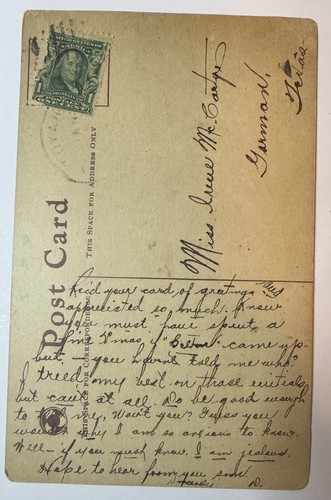 Post Card
THIS SPACE FOR ADDRESS ONLY
THIS SPACE FOR CORRESPONDENCE
Miss Irene
Gorman,
Texas
Recd your card of greetings and
appreciated so much. Know
you must have spent a
fine Xmas if "Belton" came up-
but, — you haven't told me who?
I tried my best on those initials
but can't at all. Do be good enough
to tell me, Won't you? Guess you
wonder why I am so anxious to know.
Well — if you must know. I am jealous.
Hope to hear from you soon.
D.